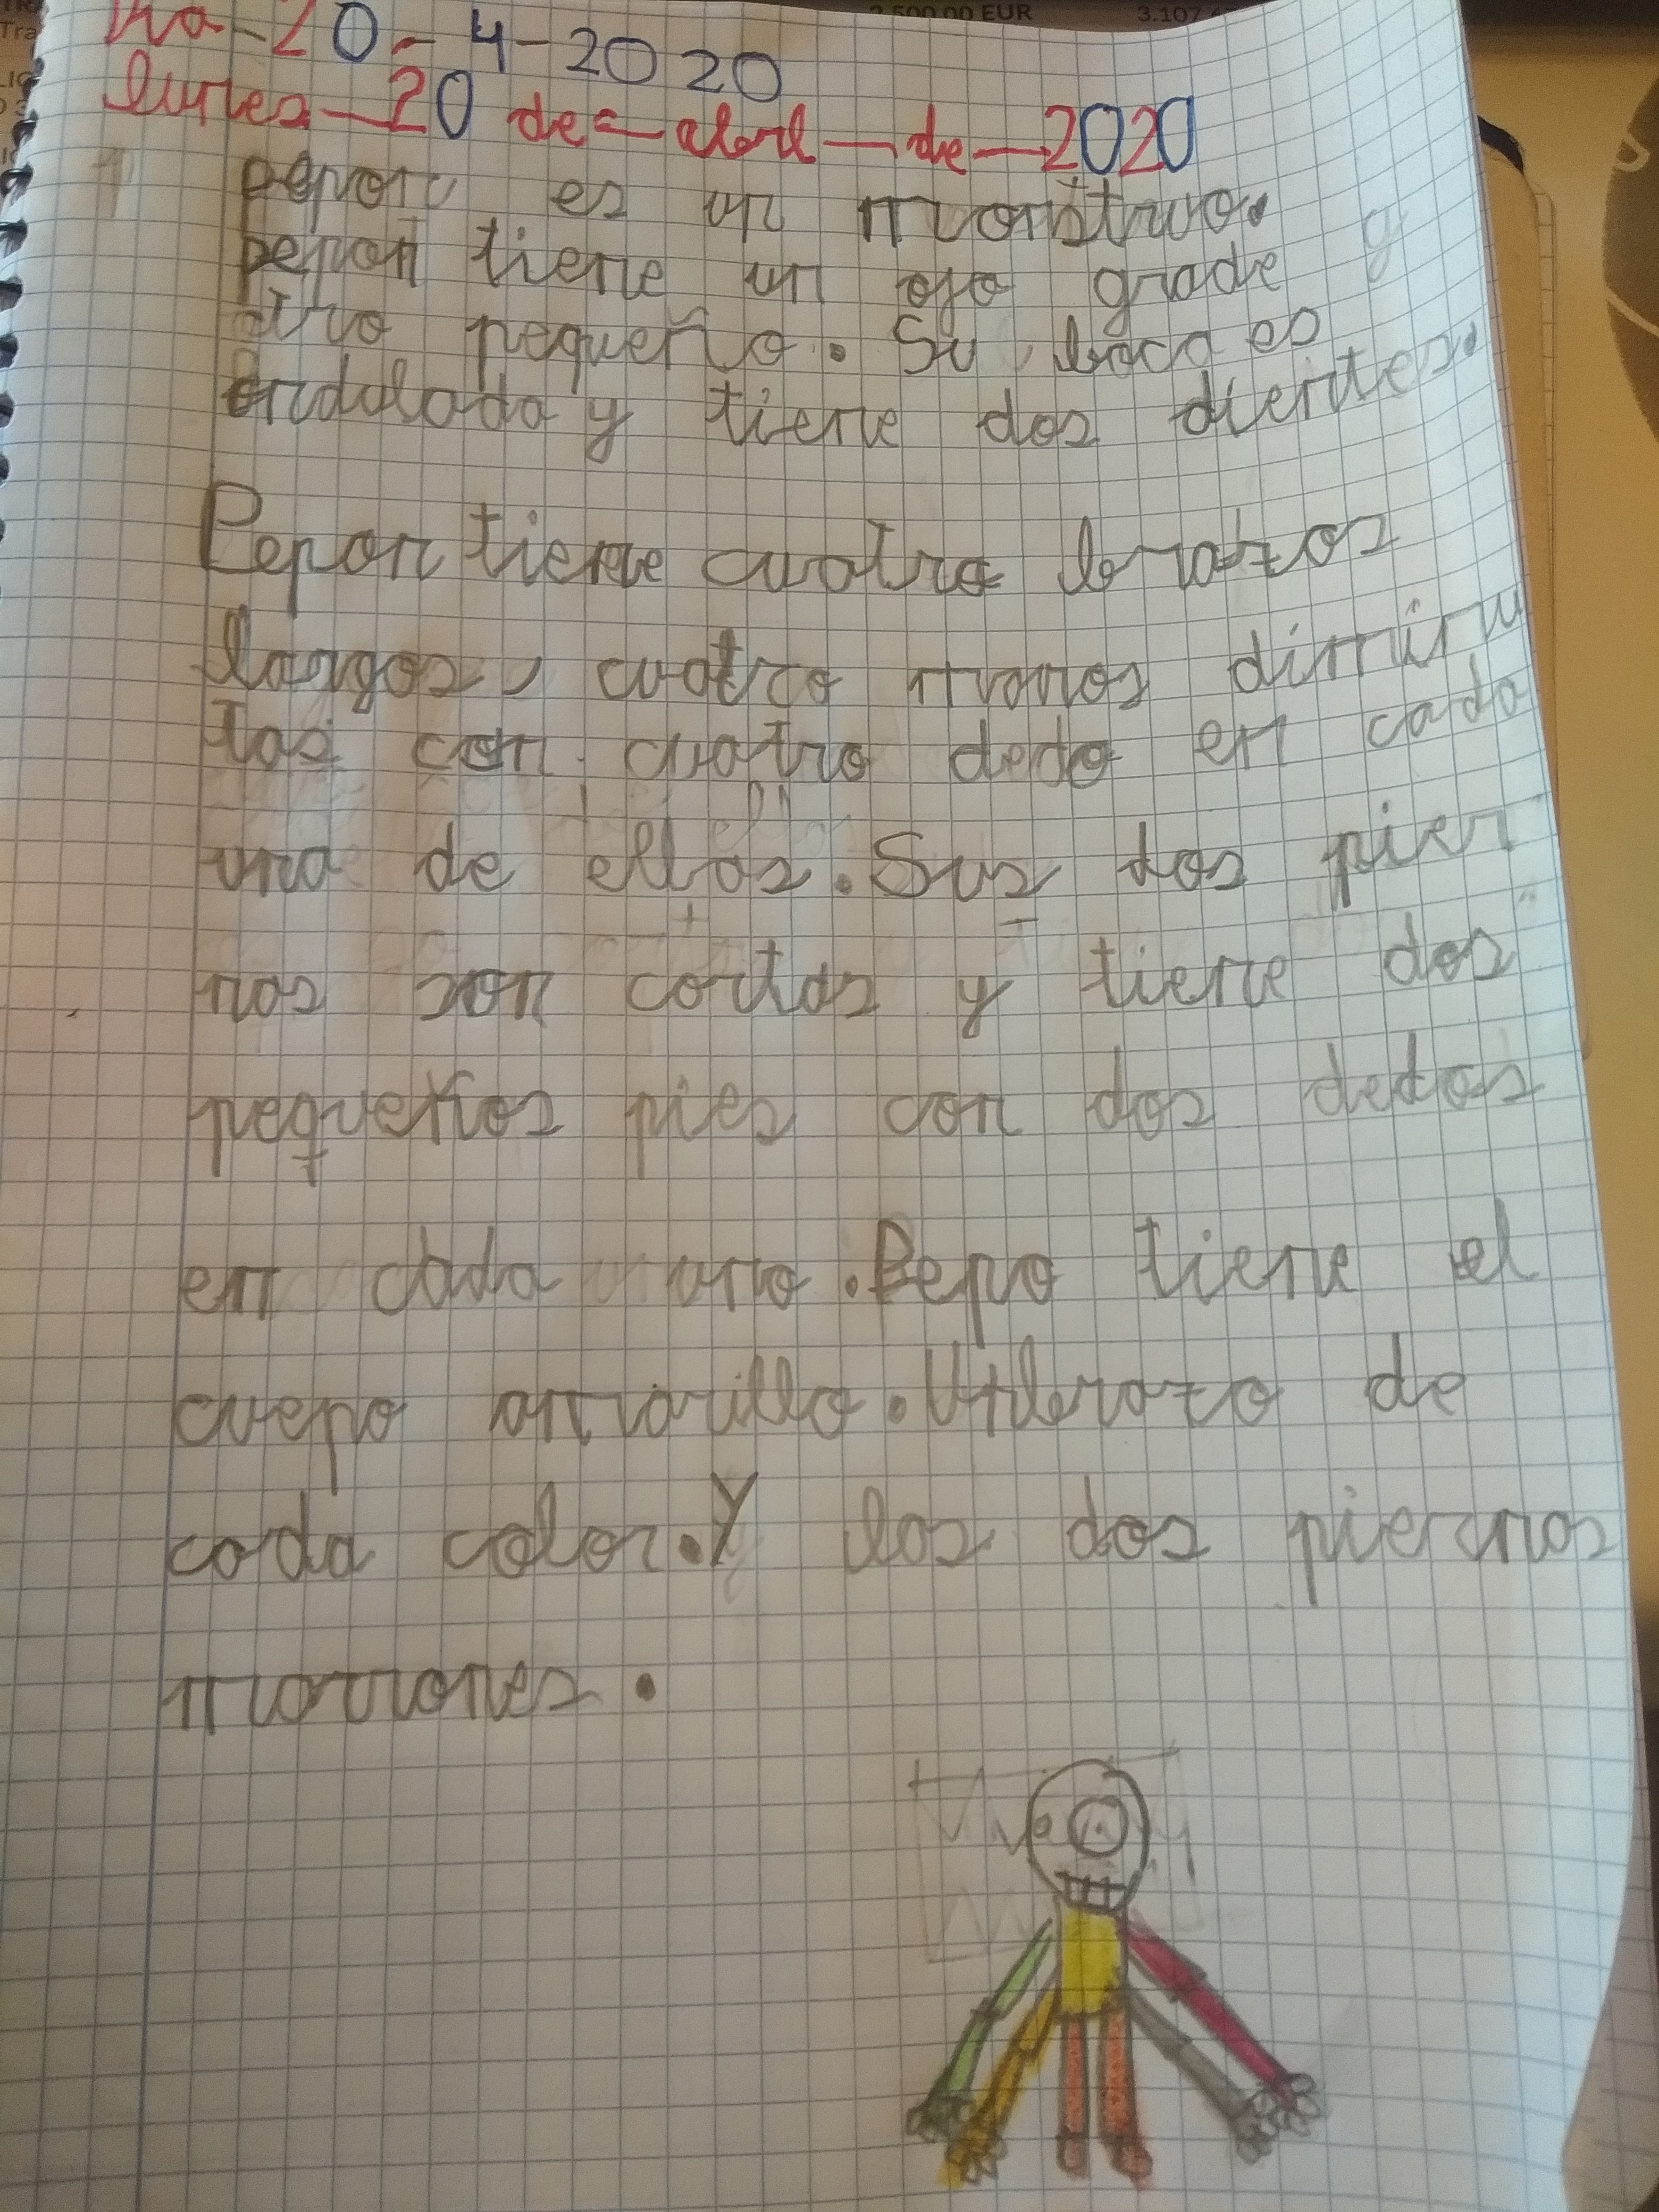 2.500,00 EUR
20-4-2020
lunes-20 de-abril-de-2020
pepon es un monstruo.
pepon tiene un ojo grade y
otro pequeño. Su boca es
ondulada y tiene dos dientes.
Pepon tiene cuatro brazos
largos, cuatro manos diminu
tas con cuatro dedo en cada
una de ellas. Sus dos pier
nas son cortas y tiene dos
pequeños pies con dos dedos
en cada uno. Pepo tiene el
cuepo amarillo. Un brazo de
cada color. Y las dos piernas
marrones.